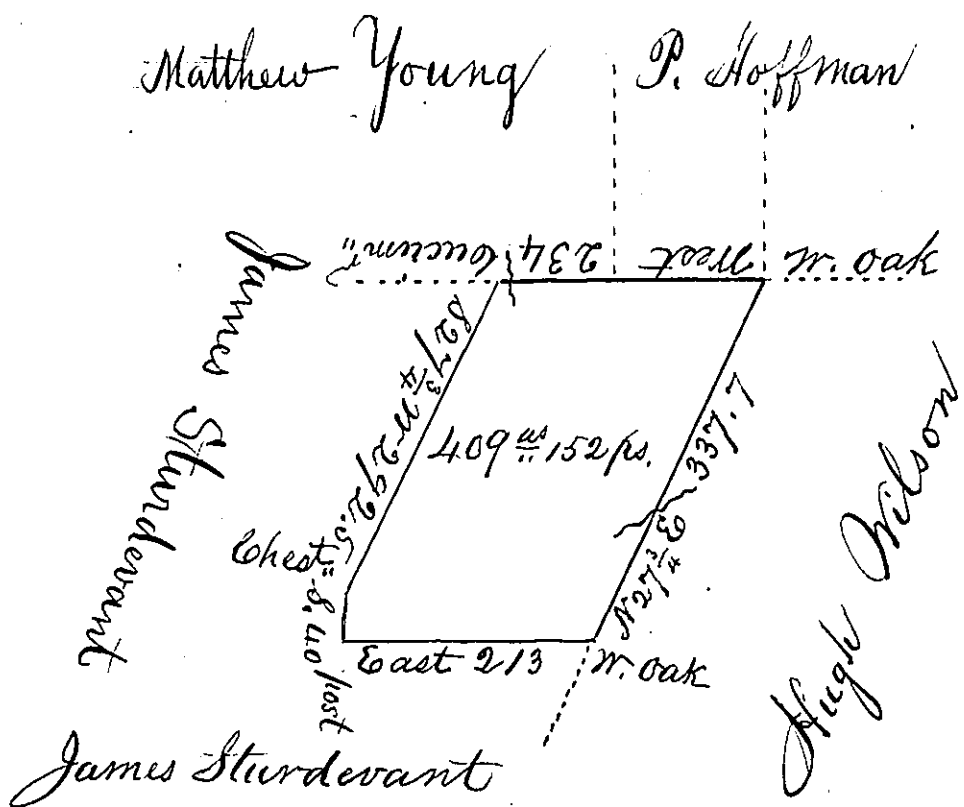 Matthew Young
P. Hoffman
James Sturdevant
Cucum.r
234
West
W. Oak
S 27 3/4 W 292.5
409 as 152 ps.
N 27 3/4 E 337.7
Hugh Wilson
Chest.
S. 40 post
East 213
W. Oak
James Sturdevant